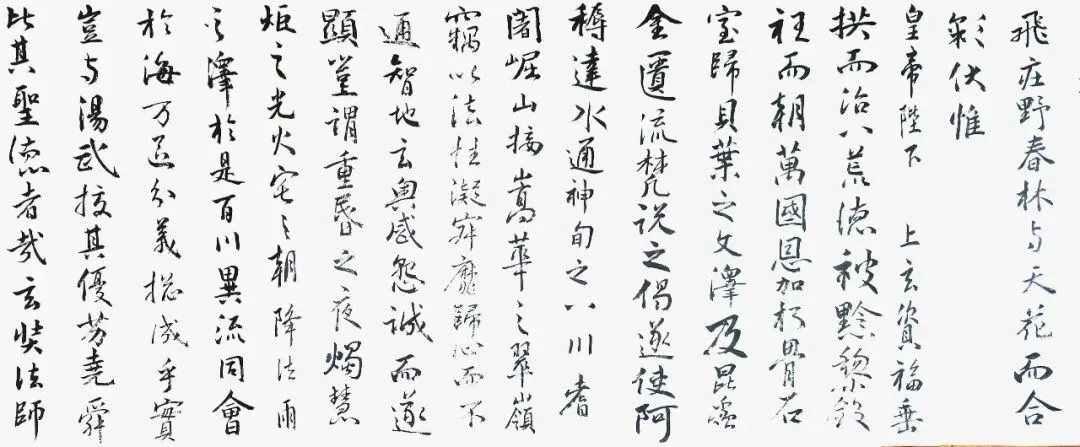 飛莊野春林与天花而合
彩伏惟
皇帝陛下 上玄資福垂
拱而治八荒德被黔黎斂
衽而朝萬國恩加朽骨石
室歸貝葉之文澤及昆蟲
金匱流梵説之偈遂使阿
耨達水通神甸之八川耆
闍崛山接嵩華之翠嶺
竊以法性凝寂靡歸心而不
通智地玄奥感懇誠而遂
顯豈謂重昏之夜燭慧
炬之光火宅之朝降法雨
之澤於是百川異流同會
於海万區分義揔成乎實
豈与湯武挍其優劣堯舜
比其聖德者哉玄奘法師